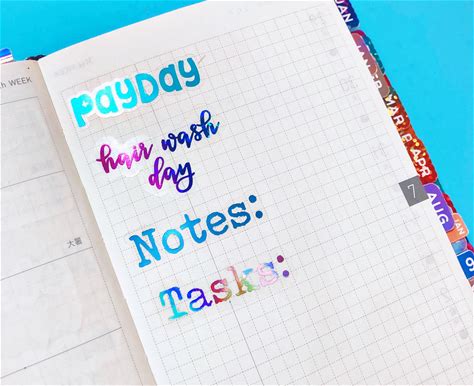 th WEEK
大暑
PAYDAY
hair wash
day
Notes:
Tasks:
JAN
MAR
APR
7
AUG
JAN
9